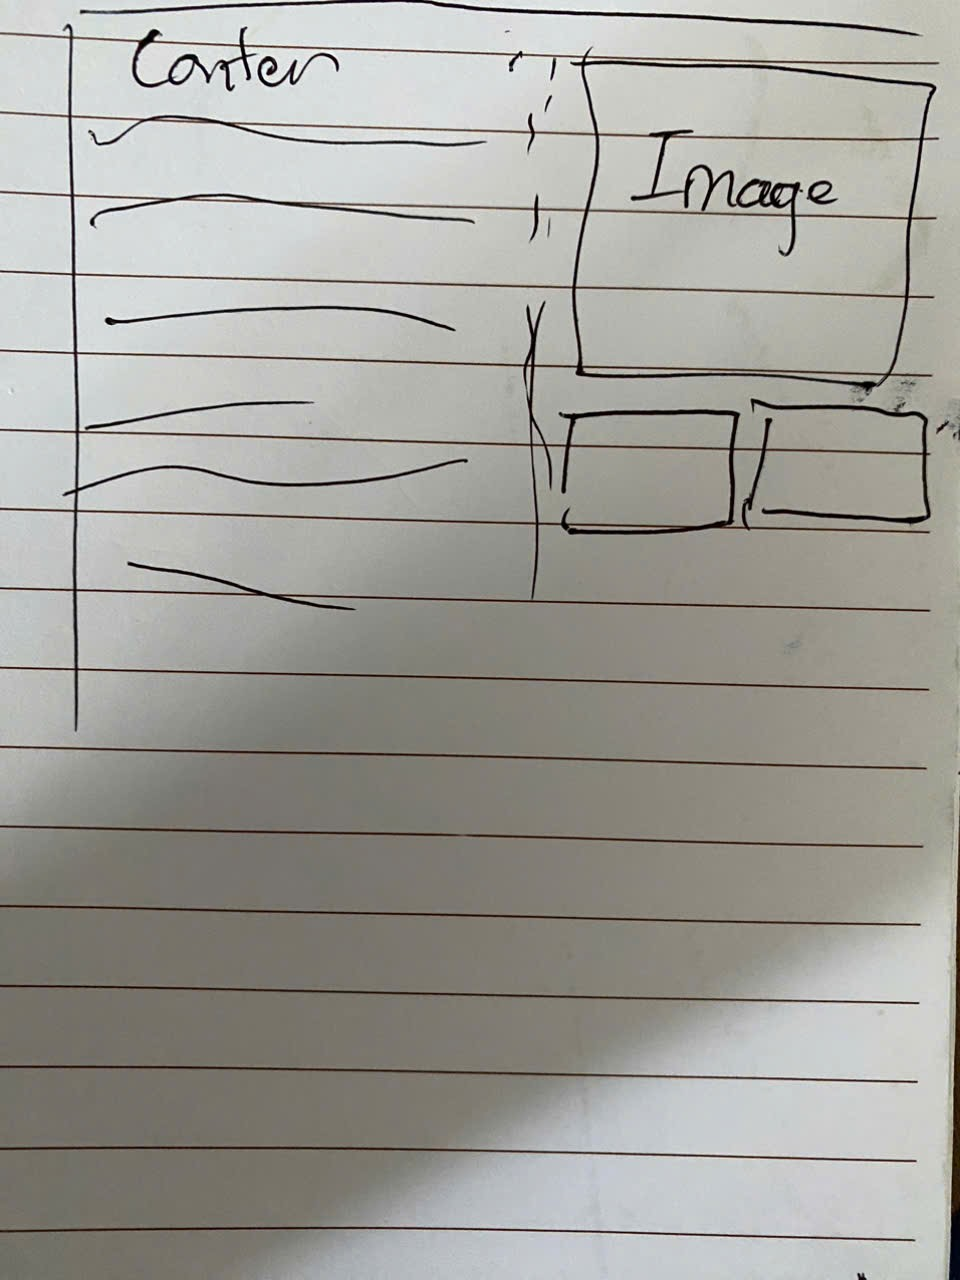 Conten
Image